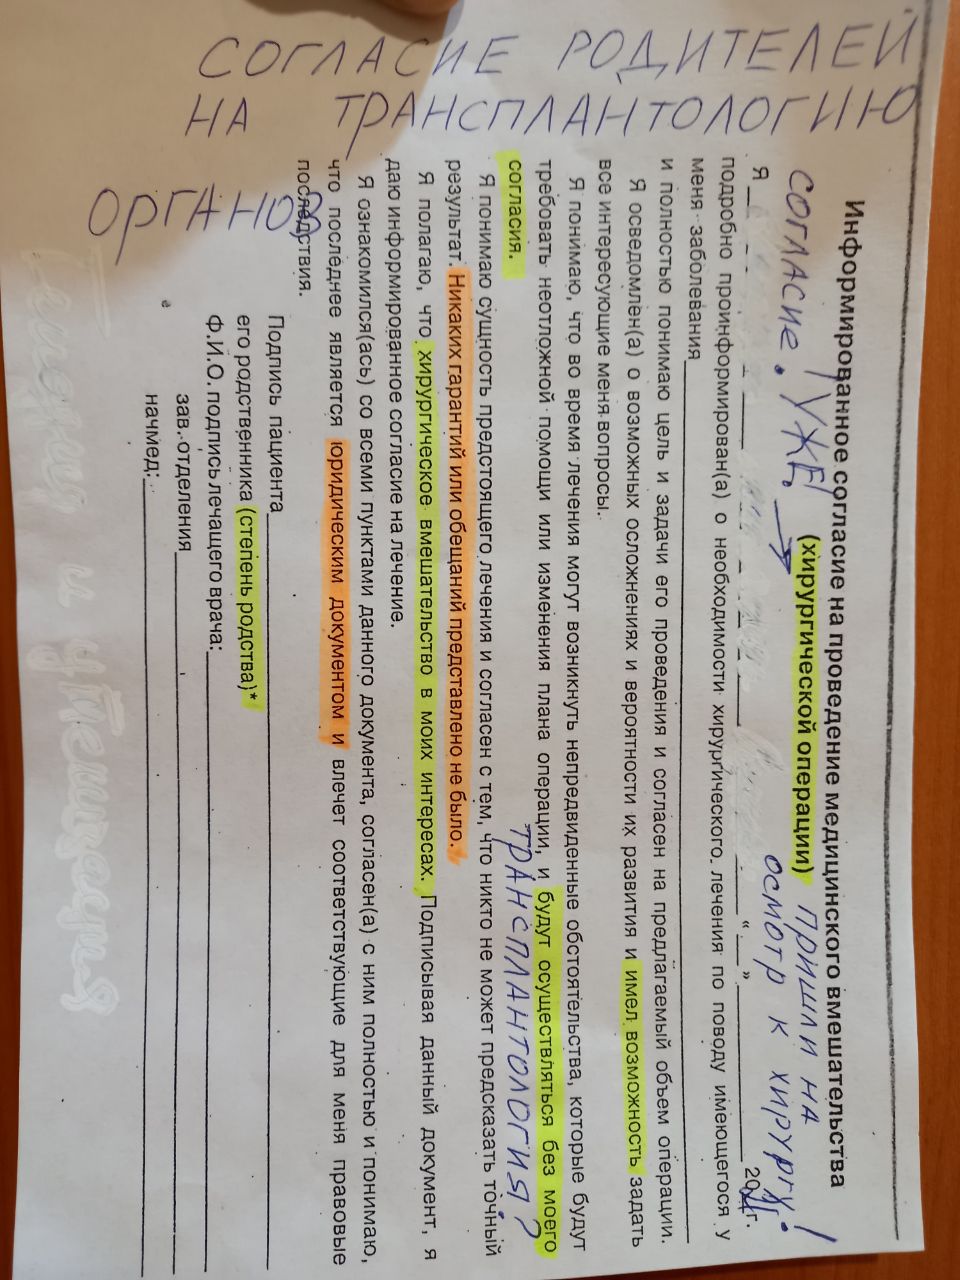 СОГЛАСИЕ РОДИТЕЛЕЙ
НА ТРАНСПЛАНТОЛОГИЮ
ОРГАНОВ
Информированное согласие на проведение медицинского вмешательства
(хирургической операции)
СОГЛАСИЕ. УЖЕ!
ПРИШЛИ НА
ОСМОТР К ХИРУРГУ!
Я
" " 20 г.
подробно проинформирован(а) о необходимости хирургического лечения по поводу имеющегося у
меня заболевания
и полностью понимаю цель и задачи его проведения и согласен на предлагаемый объем операции.
Я осведомлен(а) о возможных осложнениях и вероятности их развития и имел возможность задать
все интересующие меня вопросы.
Я понимаю, что во время лечения могут возникнуть непредвиденные обстоятельства, которые будут
требовать неотложной помощи или изменения плана операции, и будут осуществляться без моего
согласия.
ТРАНСПЛАНТОЛОГИЯ?
Я понимаю сущность предстоящего лечения и согласен с тем, что никто не может предсказать точный
результат. Никаких гарантий или обещаний представлено не было.
Я полагаю, что хирургическое вмешательство в моих интересах. Подписывая данный документ, я
даю информированное согласие на лечение.
Я ознакомился(ась) со всеми пунктами данного документа, согласен(а) с ним полностью и понимаю,
что последнее является юридическим документом и влечет соответствующие для меня правовые
последствия.
Подпись пациента
его родственника (степень родства)*
Ф.И.О. подпись лечащего врача:
зав. отделения
начмед: